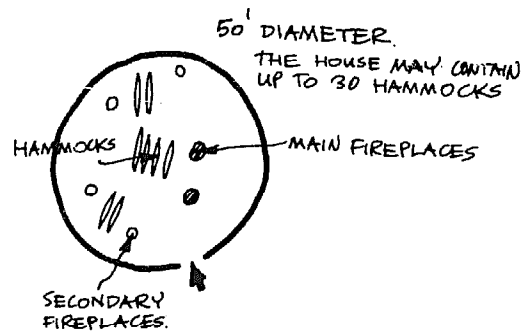 50' DIAMETER.
THE HOUSE MAY CONTAIN
UP TO 30 HAMMOCKS
HAMMOCKS
MAIN FIREPLACES
SECONDARY
FIREPLACES.